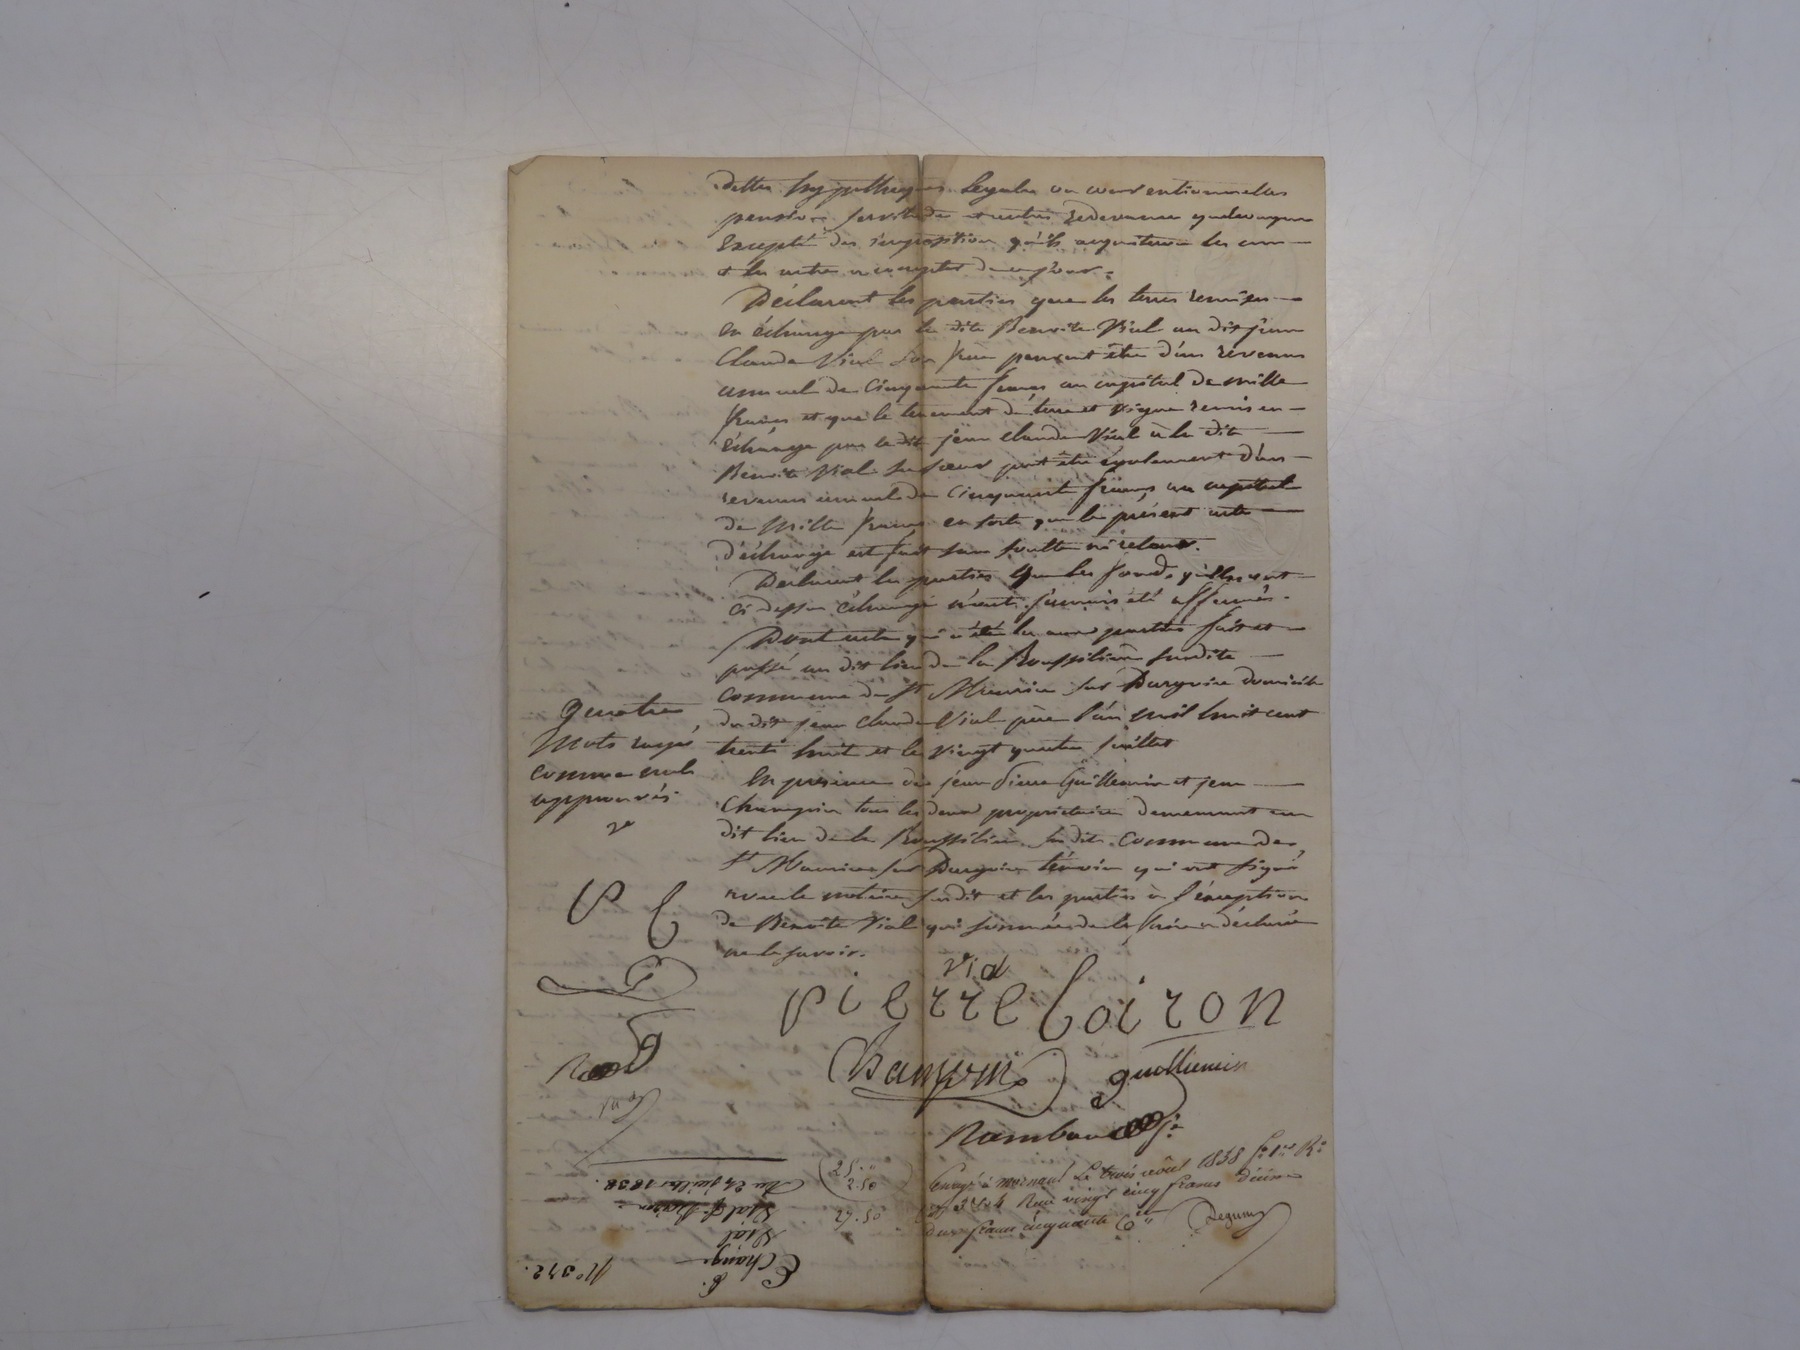 dettes hypothèques légales ou conventionnelles
pension servitudes et autres redevances quelconques
Excepté des imposition qu'ils acquitteron les uns
et les autres a compter de ce jour.
Déclarent les parties que les terres remises
en échange par la dite Benoite Vial au dit jean
Claude Vial son frère peuvent être d'un revenu
annuel de Cinquante francs au capital de mille
francs et que le tenement de terre et vigne remis en
Echange par le dit jean claude Vial à la dite
Benoite Vial sa soeur peut être également d'un
revenu annuel de Cinquante francs au capital
de Mille francs en sorte que le présent acte
d'échange est fait sans soulte ni retour.
Déclarent les parties que les fonds qu'ils ont
ci dessus échangé n'ont jamais été affermés.
Dont acte qui a été lu aux parties fait et
passé au dit lieu de la Roussilière susdite
commune de St Maurice sur Dargoire domicile
du dit jean claude Vial père l'an mil huit cent
trente huit et le vingt quatre juillet
En présence de jean Pierre Guillemin et jean
Champin tous les deux propriétaires demeurant au
dit lieu de la Roussilière susdite Commune de
St Maurice sur Dargoire témoin qui ont signé
avec le notaire susdit et les parties à l'éxception
de Benoite Vial qui sommée de le faire a déclaré
ne le savoir.
Quatre
Mots rayés
comme nuls
approuvés
P C
vial
pierre Coiron
Champin
guilliemin
Rambaud
Enregé à mornant Le trois août 1838 fo 1er Ro
Reçu vingt cinq francs décime
deux francs cinquante Ces
25. "
2. 50
27. 50
N° 372.
Echange
Vial
Vial &
Du 24 juillet 1838.